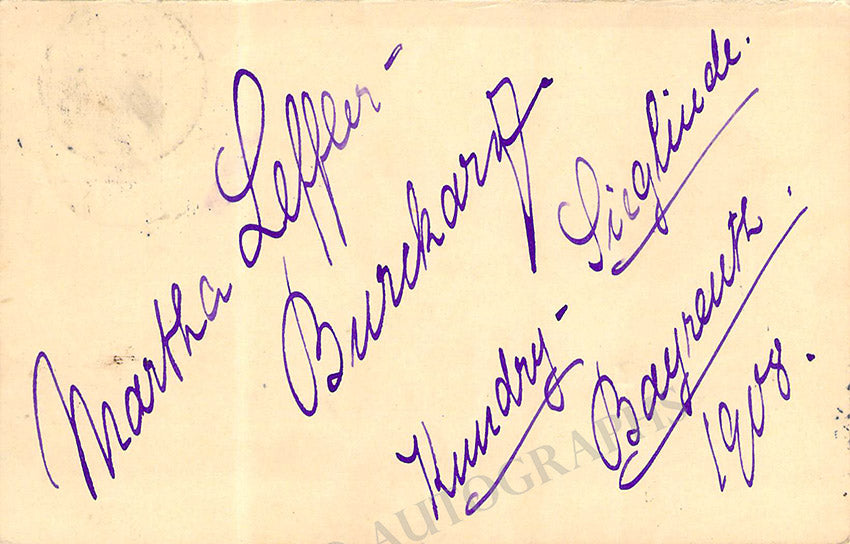 Martha Leffler-
Burckardt.
Kundry- Sieglinde.
Bayreuth.
1908.
AUTOGRAPHS